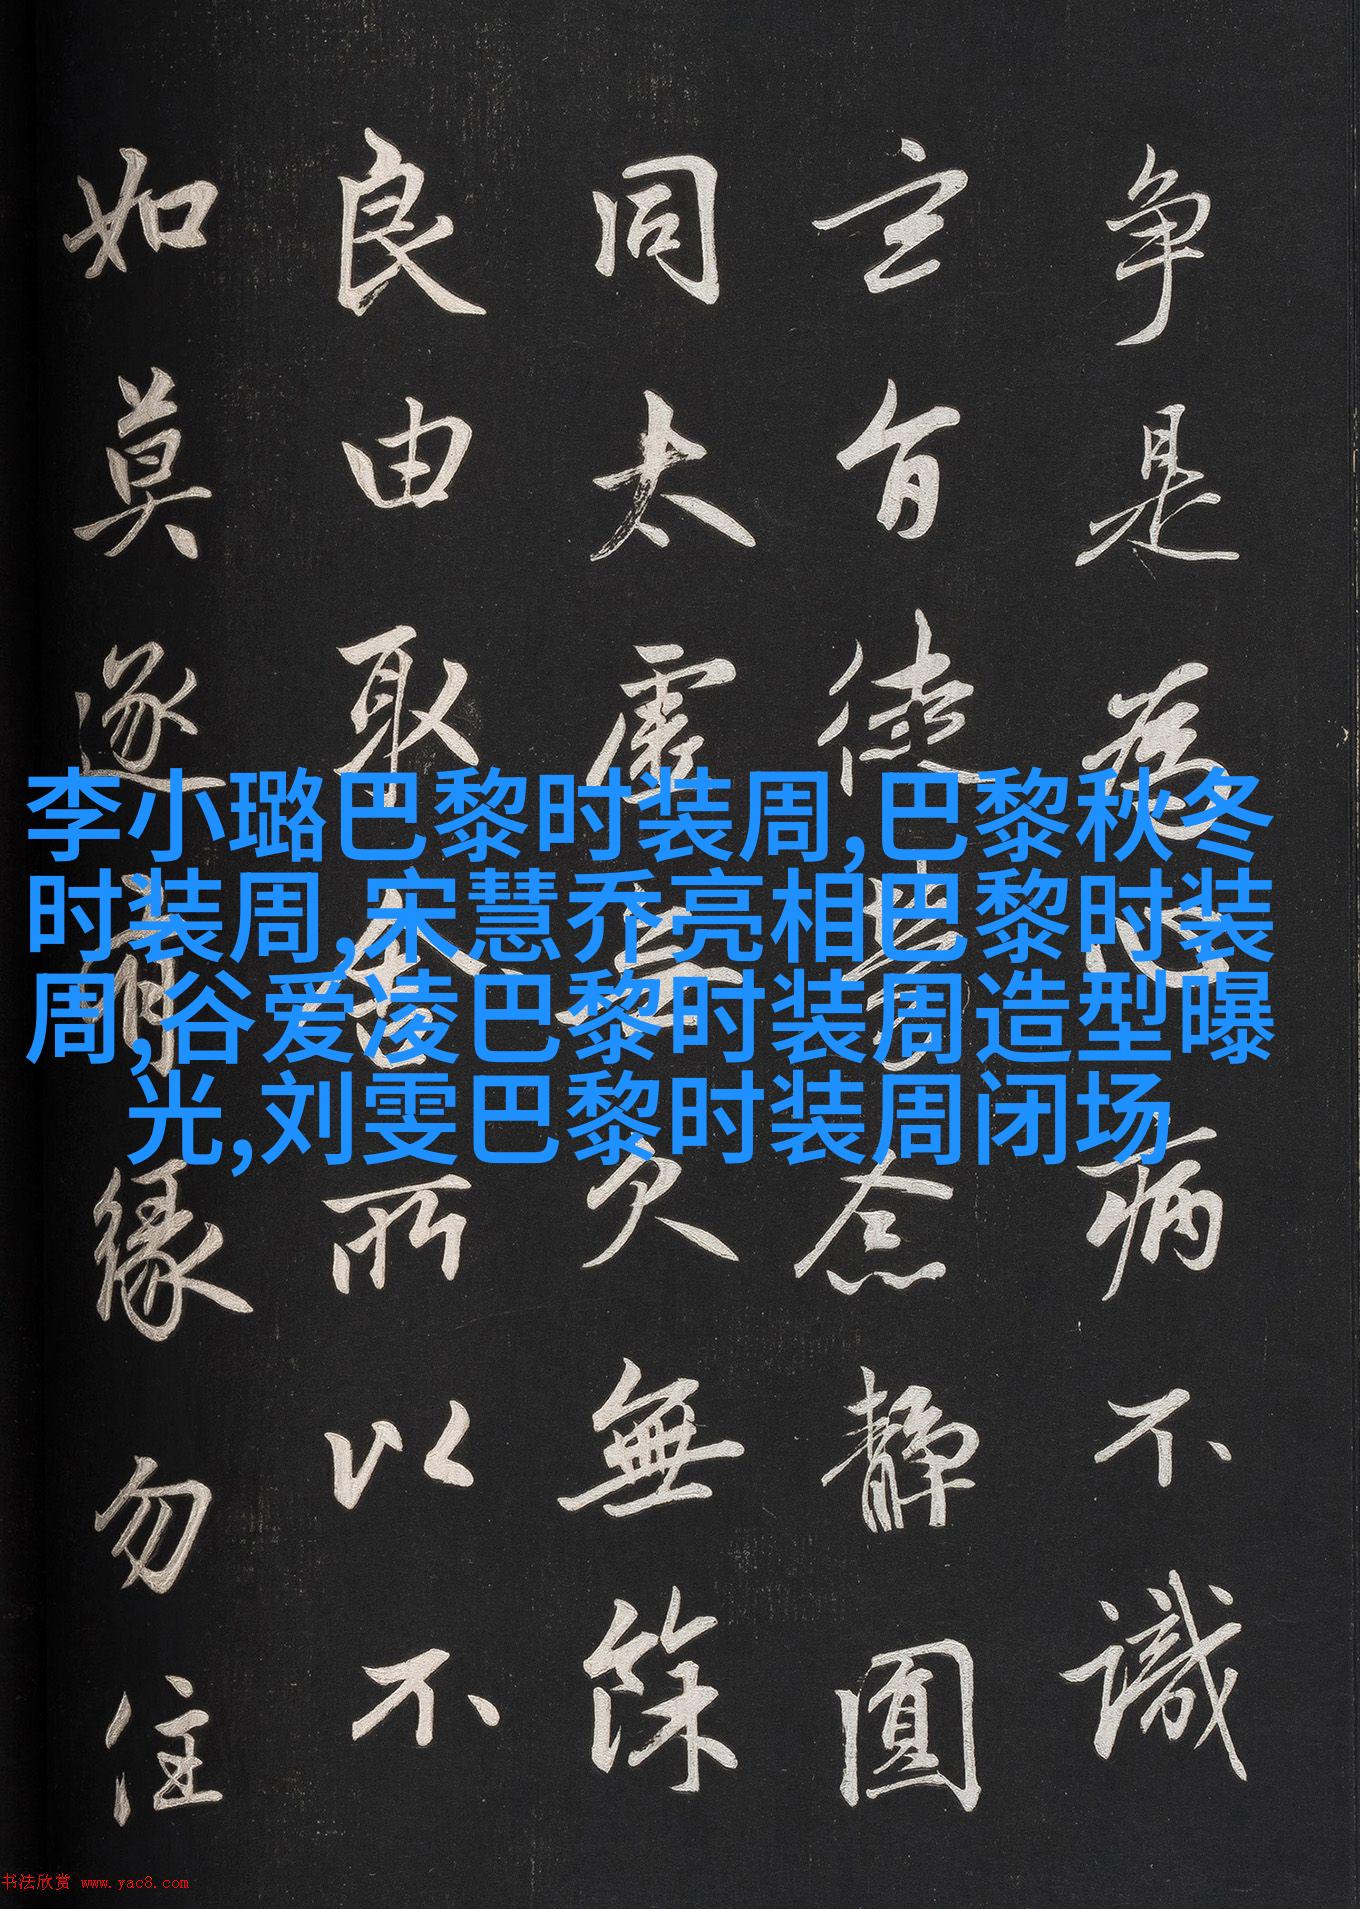 争是為心病不識
玄旨徒勞念静圓
同太虛無欠無餘
良由取舍所以不
如莫逐有緣勿住
李小璐巴黎时装周,巴黎秋冬
时装周,宋慧乔亮相巴黎时装
周,谷爱凌巴黎时装周造型曝
光,刘雯巴黎时装周闭场
书法欣赏 www.yac8.com